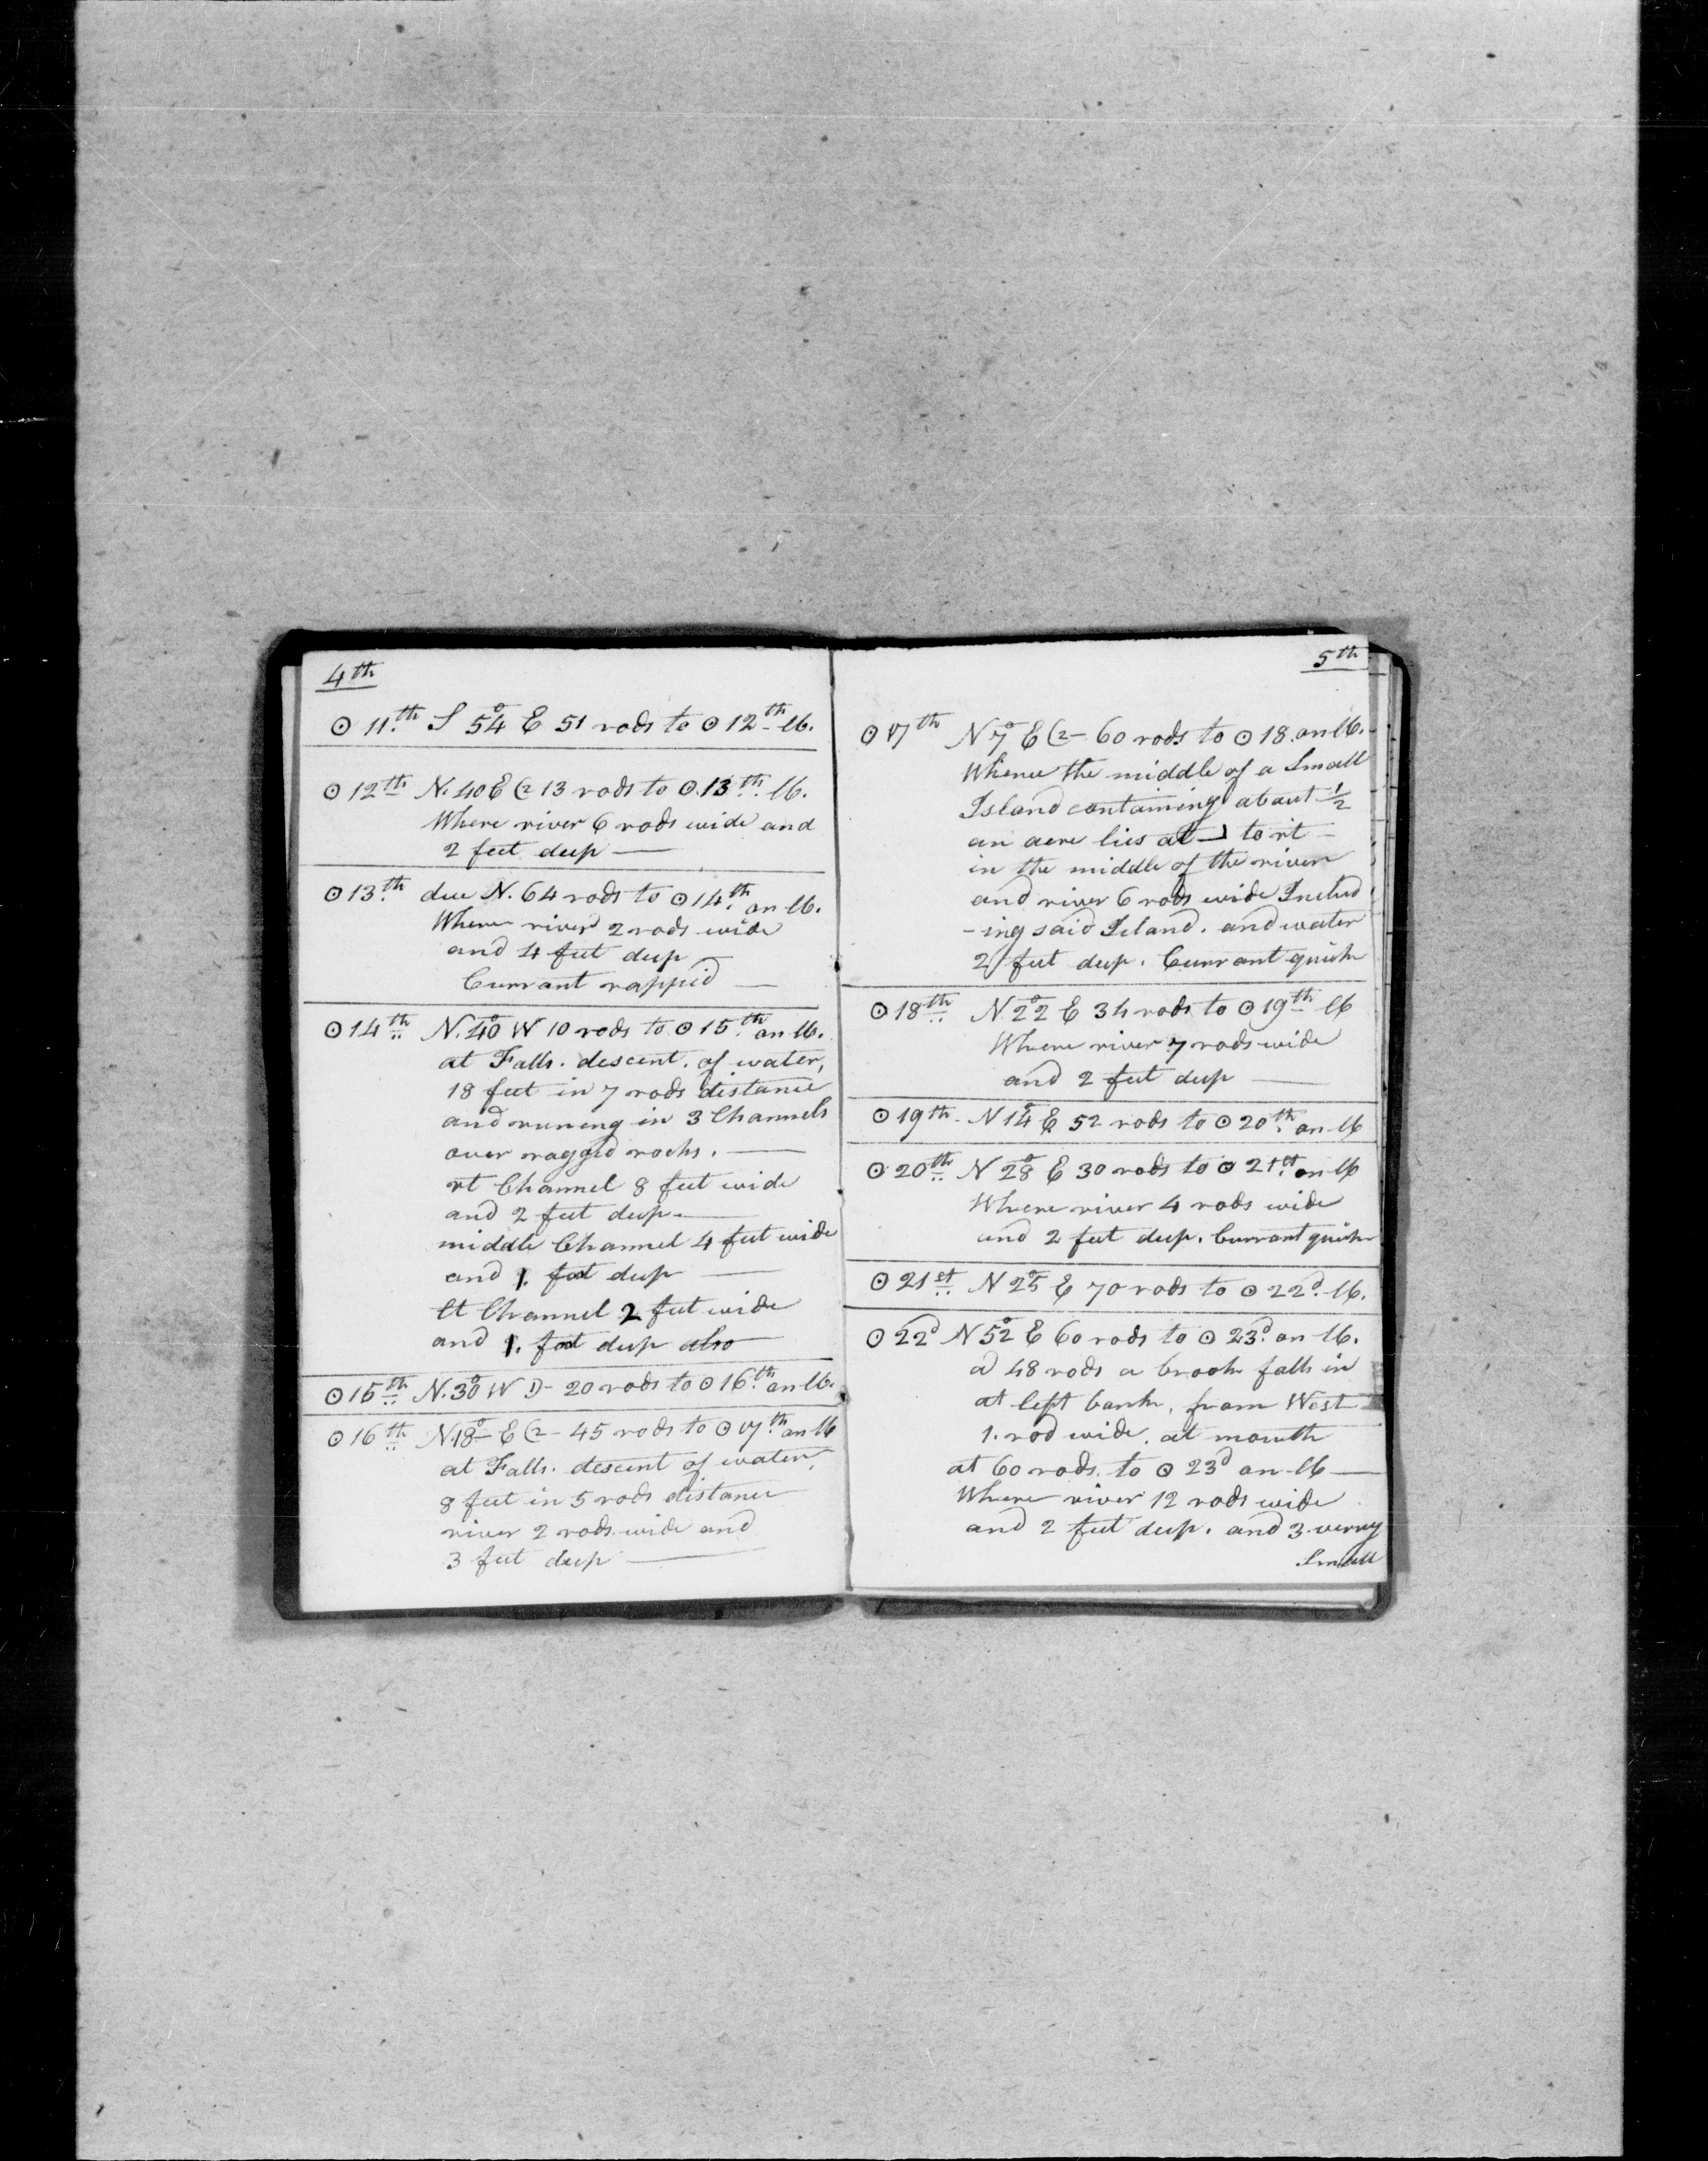 4th
⊙ 11th S 54° E 51 rods to ⊙ 12th lb.
⊙ 12th N. 40 E 13 rods to ⊙ 13th. lb.
Where river 6 rods wide and
2 feet deep —
⊙ 13th due N. 64 rods to ⊙ 14th on lb.
Where river 2 rods wide
and 4 feet deep —
Currant rappid —
⊙ 14th N. 40° W 10 rods to ⊙ 15th on lb.
at Falls. descent. of water,
18 feet in 7 rods distance
and runing in 3 Channels
over ragged rocks. —
rt Channel 8 feet wide
and 2 feet deep. —
middle Channel 4 feet wide
and 1. foot deep —
lt Channel 2 feet wide
and 1. foot deep also
⊙ 15th N. 30° W D - 20 rods to ⊙ 16th on lb.
⊙ 16th N. 18° E - 45 rods to ⊙ 17th on lb
at Falls. descent of water,
8 feet in 5 rods distance
river 2 rods wide and
3 feet deep —
5th
⊙ 17th N 7° E - 60 rods to ⊙ 18. on lb.
Whence the middle of a Small
Island containing about 1/2
an acre lies at ┘ to rt -
in the middle of the river
and river 6 rods wide Includ
-ing said Island. and water
2 feet deep. Currant quick
⊙ 18th N 22° E 34 rods to ⊙ 19th lb
Where river 7 rods wide
and 2 feet deep —
⊙ 19th. N 14° E 52 rods to ⊙ 20th. on lb
⊙ 20th N 28° E 30 rods to ⊙ 21st. on lb
Where river 4 rods wide
and 2 feet deep. Currant quick
⊙ 21st N 25° E 70 rods to ⊙ 22d. lb.
⊙ 22d N 52° E 60 rods to ⊙ 23d. on lb.
a 48 rods a brook falls in
at left bank, from West
1. rod wide. at mouth
at 60 rods. to ⊙ 23d on lb —
Where river 12 rods wide
and 2 feet deep. and 3 verry
Small